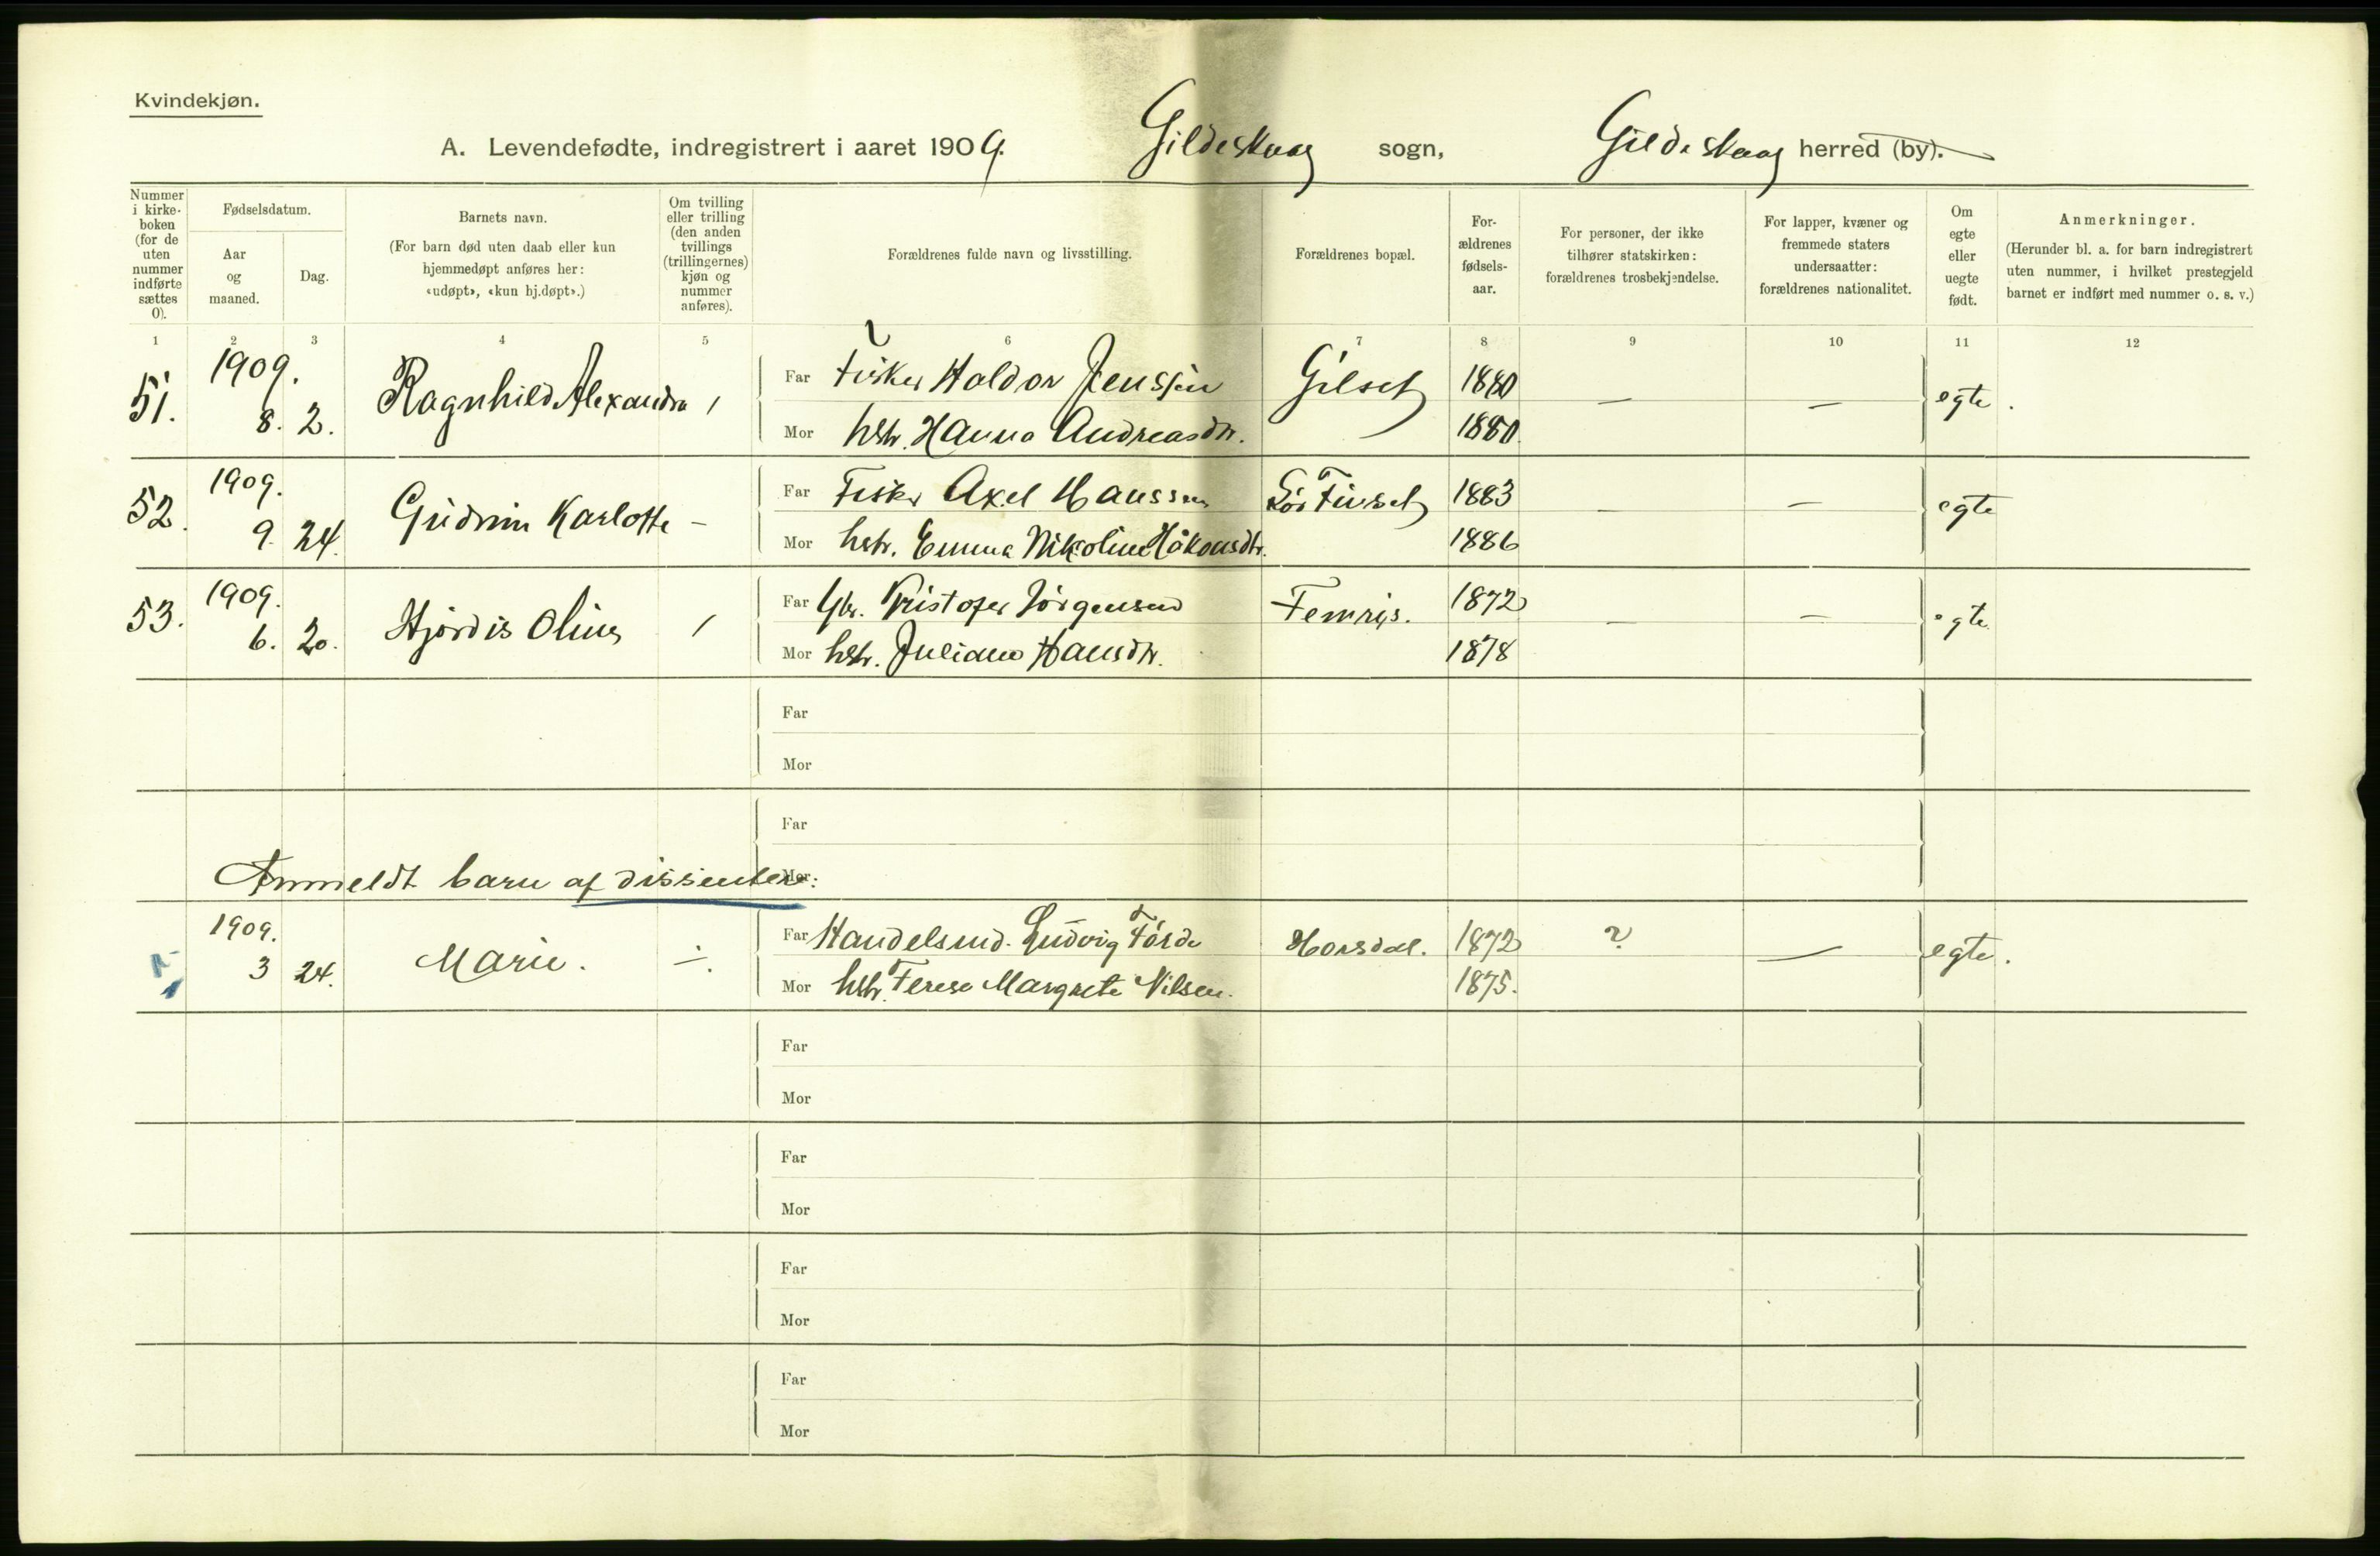 Kvindekjøn.
A. Levendefødte, indregistrert i aaret 1909. Gildeskaag sogn, Gildeskaag herred (by).
Nummer i kirke-boken (for de uten nummer indførte sættes 0).
Fødselsdatum.
Aar og maaned.
Dag.
Barnets navn.
(For barn død uten daab eller kun hjemmedøpt anføres her: «udøpt», «kun bj.døpt».)
Om tvilling eller trilling (den anden tvillings (trillingernes) kjøn og nummer anføres).
Forældrenes fulde navn og livsstilling.
Forældrenes bopæl.
For-ældrenes fødsels-aar.
For personer, der ikke tilhører statskirken: forældrenes trosbekjendelse.
For lapper, kvæner og fremmede staters undersaatter: forældrenes nationalitet.
Om egte eller uegte født.
Anmerkninger.
(Herunder bl. a. for barn indregistrert uten nummer, i hvilket prestegjeld barnet er indført med nummer o. s. v.)
1 2 3 4 5 6 7 8 9 10 11 12
51. 1909. 8. 2. Ragnhild Alexandra / Far Fisker Haldor Jenssen Gilset 1880 — — egte.
Mor hstr. Hanna Andreasdtr. 1880
52. 1909. 9. 24. Gudrun Karlotte — Far Fisker Axel Hanssen Sør Finset 1883 — — egte
Mor hstr. Emma Nikoline Håkonsdtr. 1886
53. 1909. 6. 20. Hjørdis Oline / Far Gbr. Kristofer Jørgensen Femris. 1872 — — egte
Mor hstr. Juliane Hansdtr. 1878
Far
Mor
Far
Mor
Anmeldt barn af dissentere:
1909. 3 24. Marie. ÷. Far Handelsmd. Ludvig Førde Horsdal. 1872 ? — egte.
Mor hstr. Terese Margrete Nilsen. 1875.
Far
Mor
Far
Mor
Far
Mor
Far
Mor